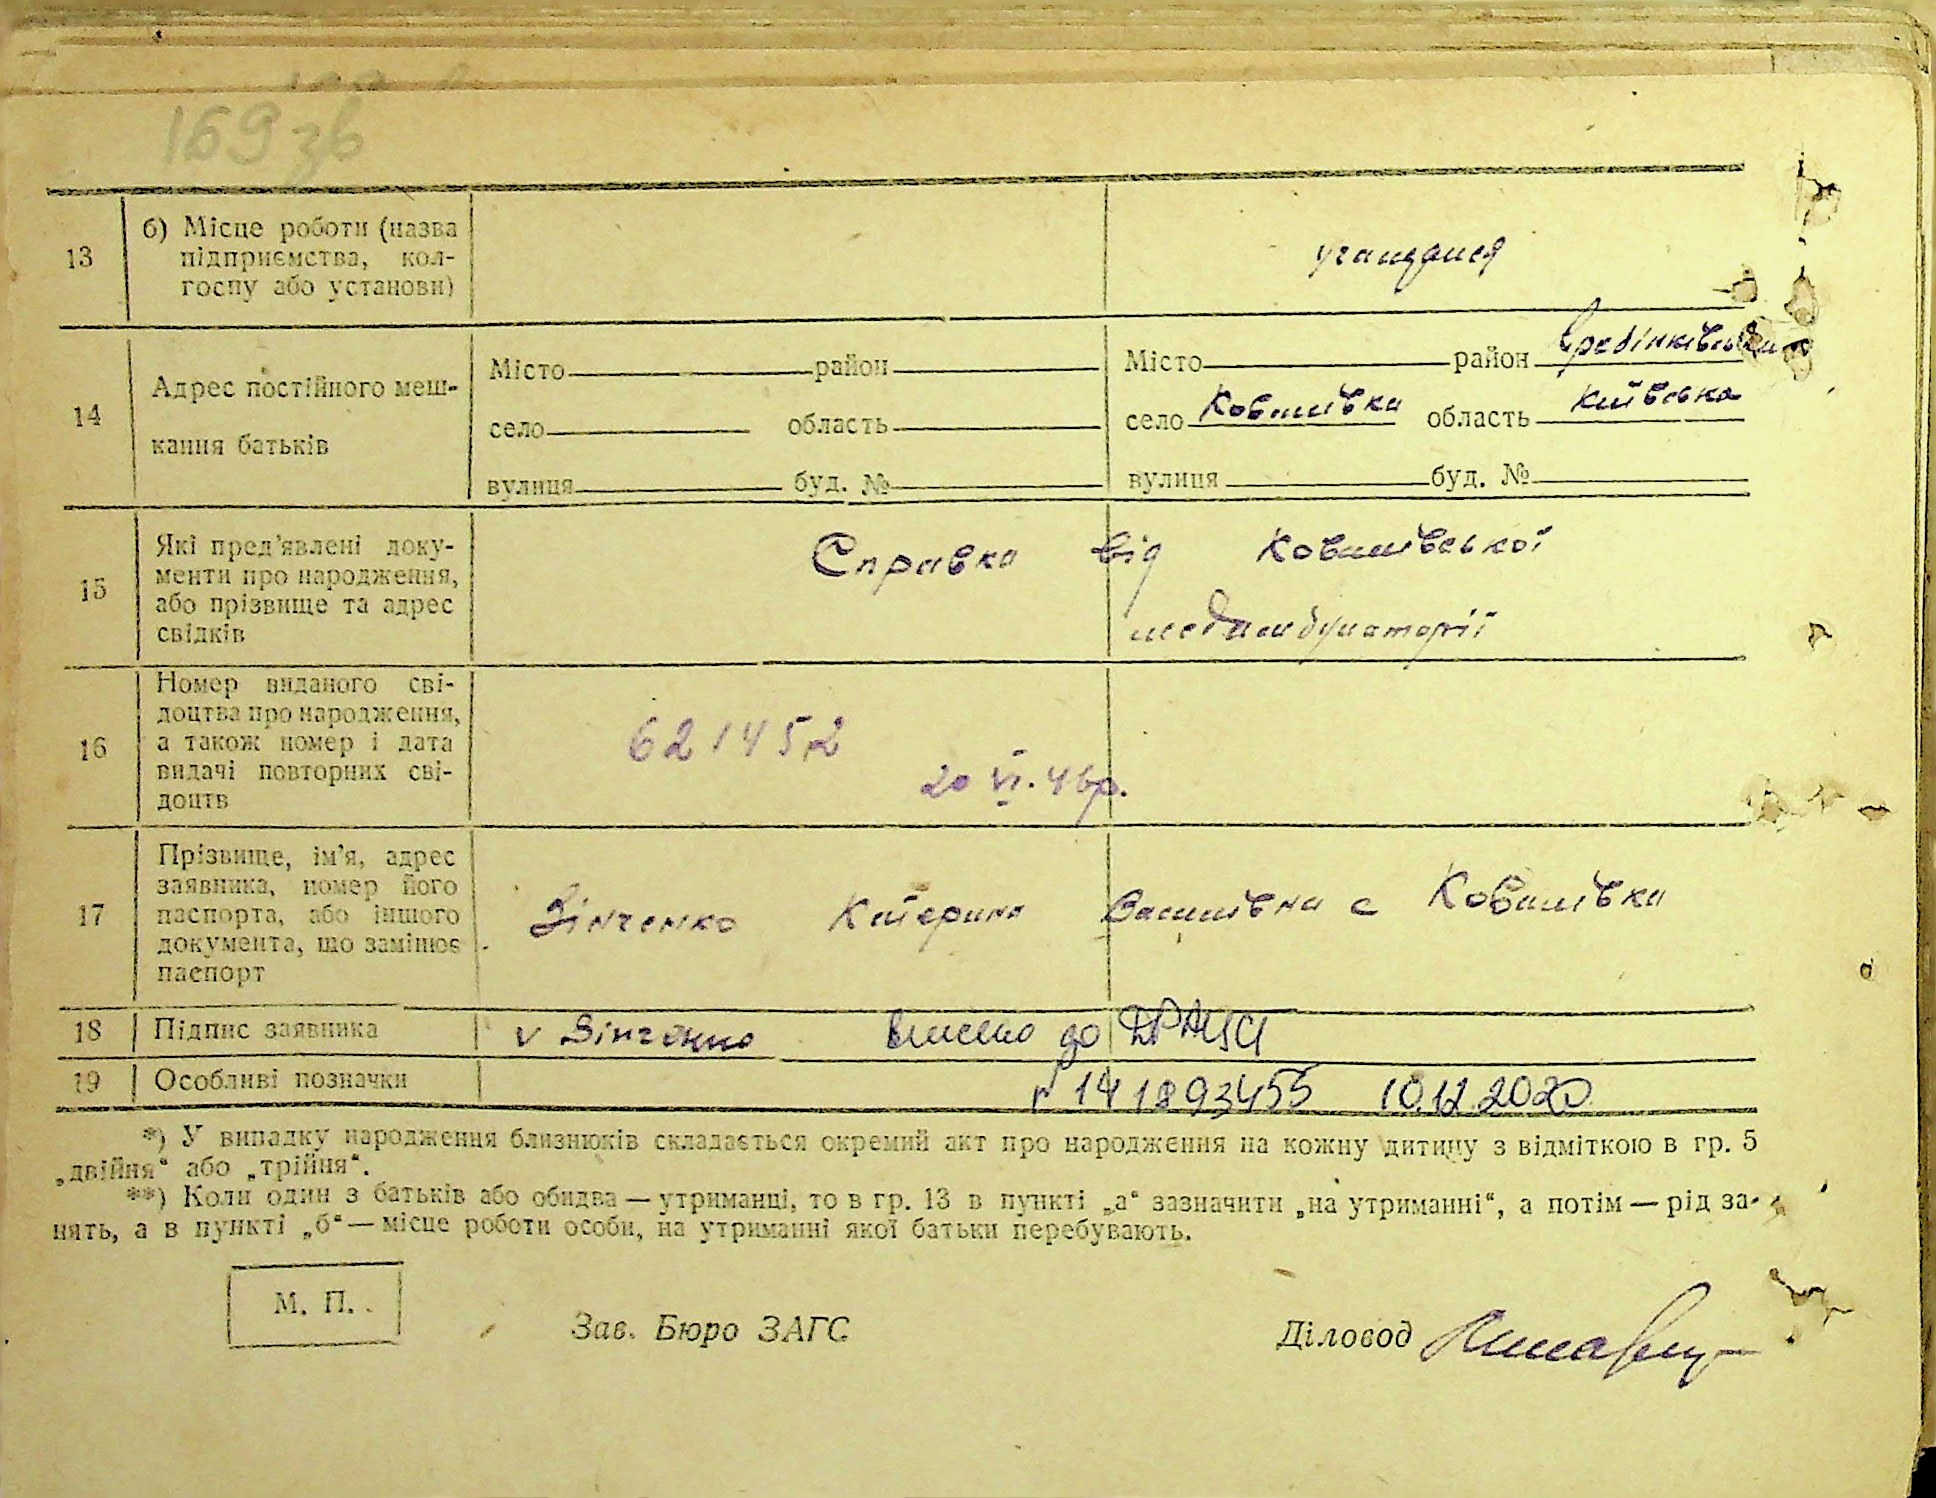 169 зв
13
б) Місце роботи (назва
підприємства, кол-
госпу або установи)
14
Адрес постійного меш-
кання батьків
Місто район
село область
вулиця буд. №
Місто район Гребінківський
село Ковалівка область Київська
вулиця буд. №
15
Які пред'явлені доку-
менти про народження,
або прізвище та адрес
свідків
Справка від Ковалівської
медамбулаторії
16
Номер виданого сві-
доцтва про народження,
а також номер і дата
видачі повторних сві-
доцтв
621452
20 VI. 46р.
17
Прізвище, ім'я, адрес
заявника, номер його
паспорта, або іншого
документа, що замінює
паспорт
Зінченко Катерина Василівна с Ковалівка
18
Підпис заявника
v Зінченко внесено до ДРАЦСГ
19
Особливі позначки
10.12.2020
*) У випадку народження близнюків складається окремий акт про народження на кожну дитину з відміткою в гр. 5
„двійня“ або „трійня“.
**) Коли один з батьків або обидва — утриманці, то в гр. 13 в пункті „а“ зазначити „на утриманні“, а потім — рід за-
нять, а в пункті „б“ — місце роботи особи, на утриманні якої батьки перебувають.
М. П.
Зав. Бюро ЗАГС
Діловод